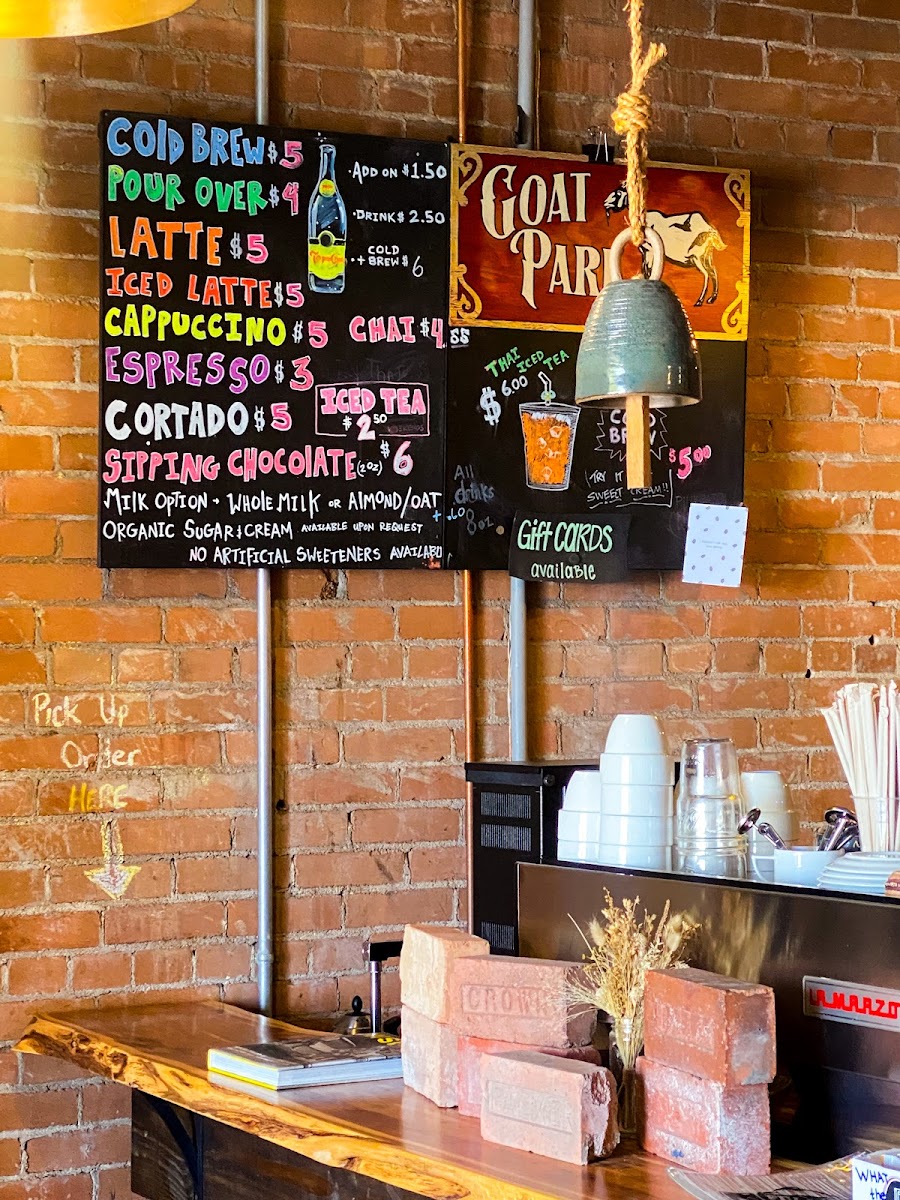 COLD BREW $5
POUR OVER $4
LATTE $5
ICED LATTE $5
CAPPUCCINO $5
ESPRESSO $3
CORTADO $5
SIPPING CHOCOLATE (2oz) $6
MILK OPTION - WHOLE MILK OR ALMOND/OAT
ORGANIC SUGAR & CREAM AVAILABLE UPON REQUEST
NO ARTIFICIAL SWEETENERS AVAILABL
Topo Chico
· ADD ON $1.50
· DRINK $2.50
· + COLD
BREW $6
CHAI $4.
55
ICED TEA
$2.50
GOAT
PAR
THAI ICED TEA
$6.00
COLD
BREW
$5.00
(TRY IT
SWEET CREAM!!
All
drinks
8oz
+.60
Gift CARDS
available
Pick Up
Order
HERE
CROWN
LA MARZO
WHAT
the